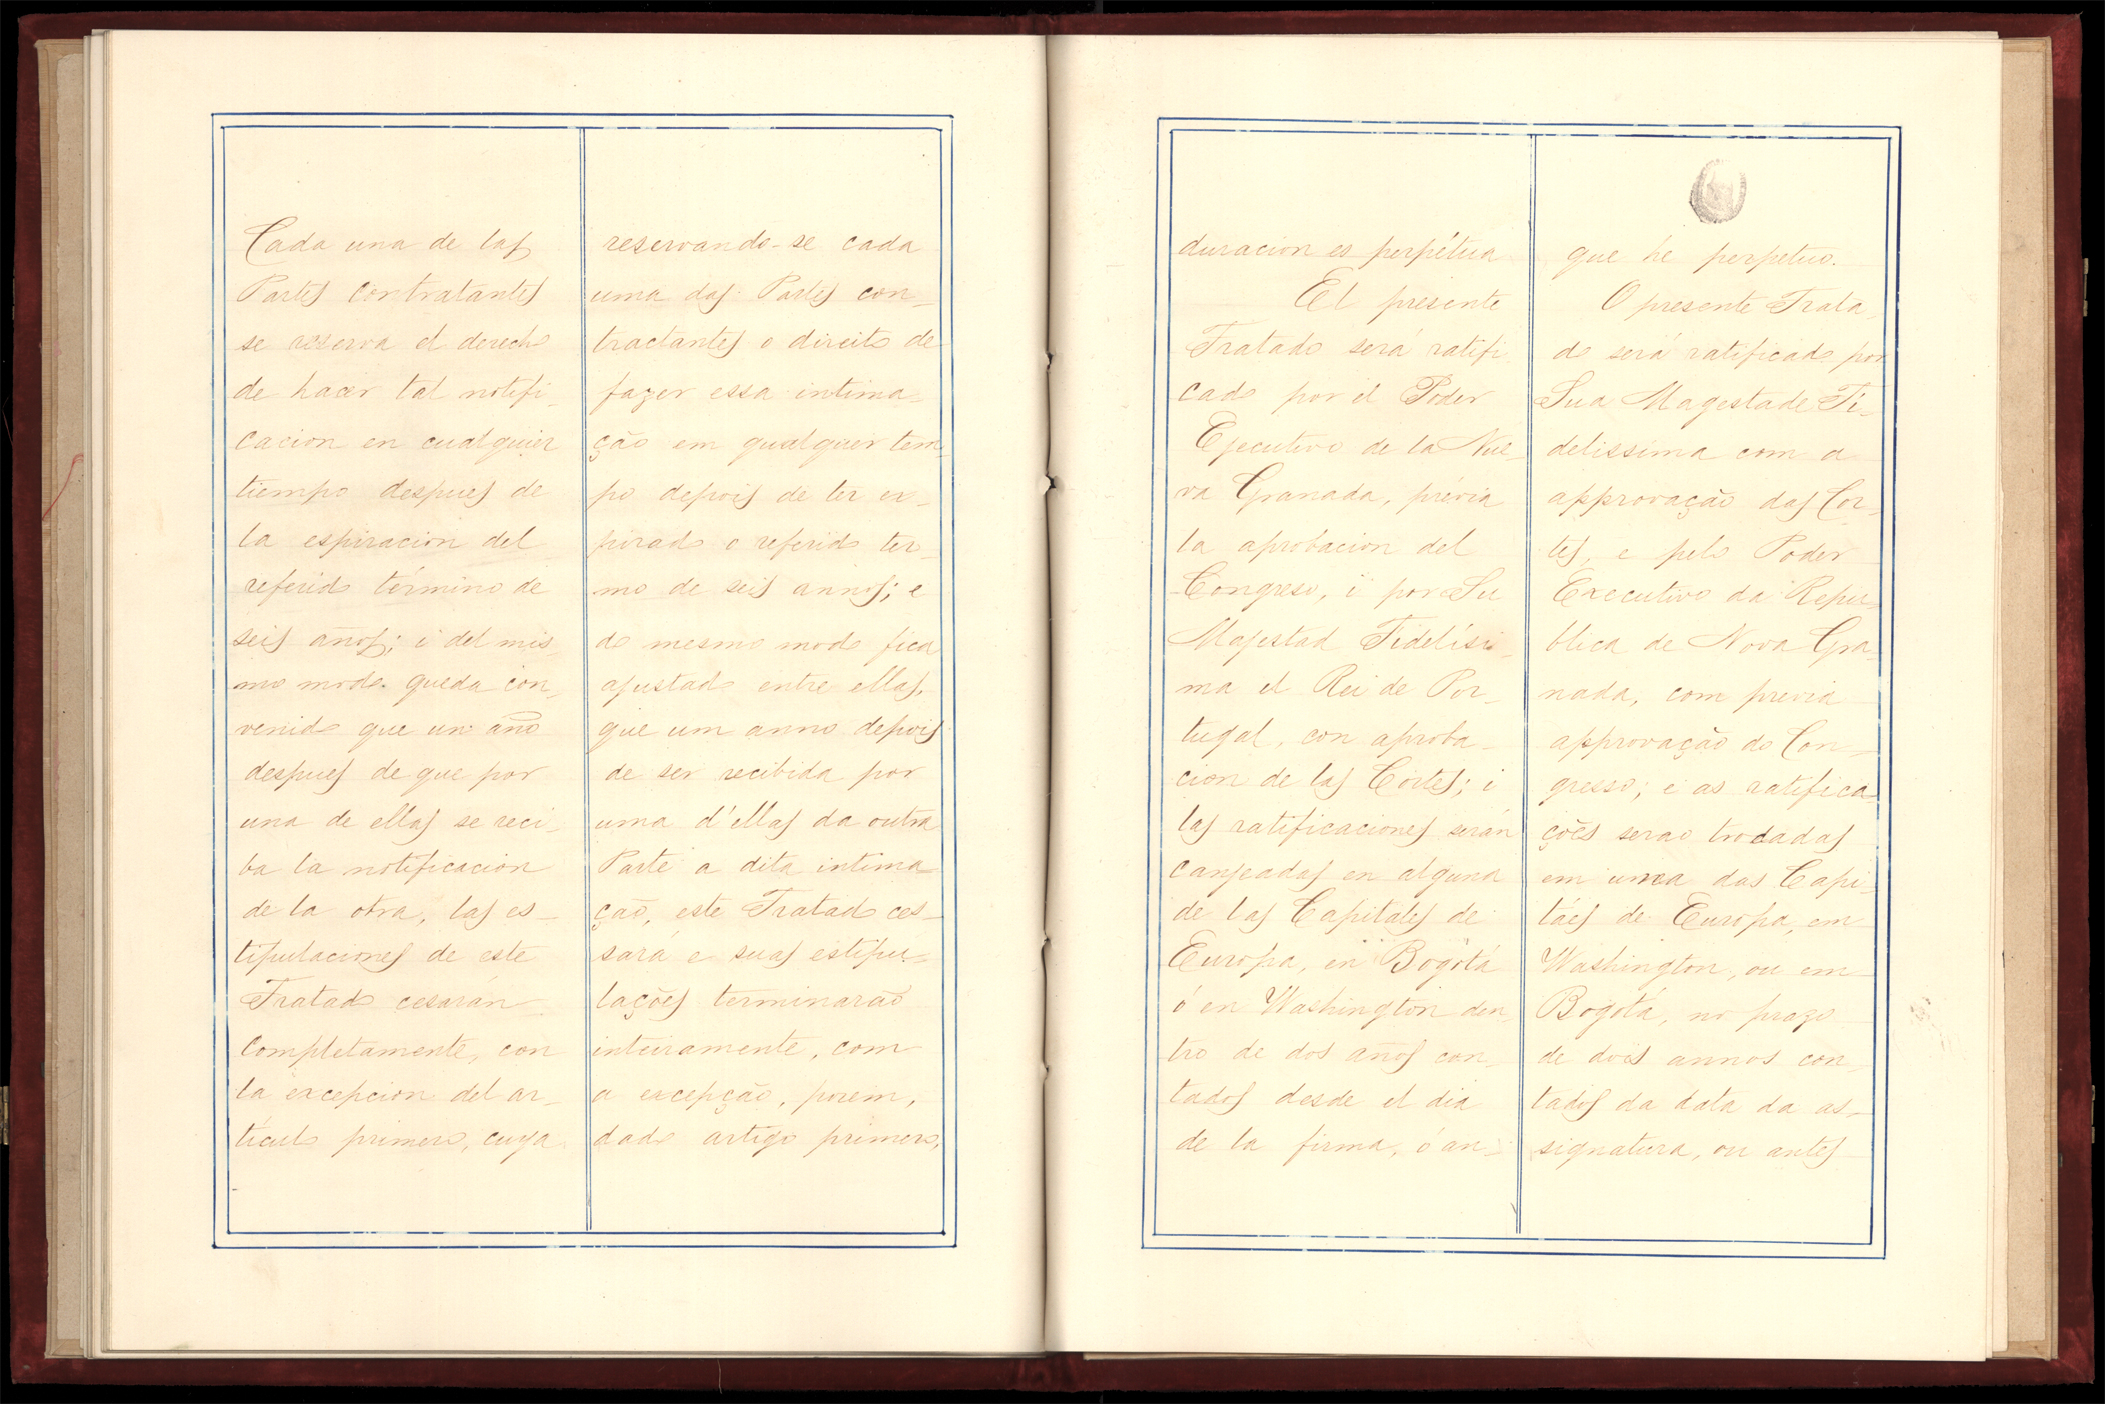 Cada una de las
Partes contratantes
se reserva el derecho
de hacer tal notifi-
cacion en cualquier
tiempo despues de
la espiracion del
referido término de
seis años; i del mis-
mo modo queda con-
venido que un año
despues de que por
una de ellas se reci-
ba la notificacion
de la otra, las es-
tipulaciones de este
Tratado cesarán
completamente, con
la excepcion del ar-
tículo primero, cuya
reservando-se cada
uma das Partes con-
tractantes o direito de
fazer essa intima-
ção em qualquer tem-
po depois de ter ex-
pirado o referido ter-
mo de seis annos; e
do mesmo modo fica
ajustado entre ellas,
que um anno depois
de ser recibida por
uma d'ellas da outra
Parte a dita intima-
ção, este Tratado ces-
sará e suas estipu-
lações terminarão
inteiramente, com
a excepção, porem,
dado artigo primero,
duracion es perpétua
El presente
Tratado será ratifi-
cado por el Poder
Ejecutivo de la Nue-
va Granada, prévia
la aprobacion del
Congreso, i por Su
Majestad Fidelísi-
ma el Rei de Por-
tugal, con aproba-
cion de las Córtes; i
las ratificaciones serán
canjeadas en alguna
de las Capitales de
Europa, en Bogotá
ó en Washington den-
tro de dos años con-
tados desde el dia
de la firma, ó an-
que he perpetuo.
O presente Trata-
do será ratificado por
Sua Magestade Fi-
delissima com a
approvação das Cor-
tes, e pelo Poder
Executivo da Repu-
blica de Nova Gra-
nada, com previa
approvação do Con-
gresso; e as ratifica-
ções serao trocadas
em uma das Capi-
táes de Europa, em
Washington, ou em
Bogotá, no prazo
de dois annos con-
tados da data da as-
signatura, ou antes